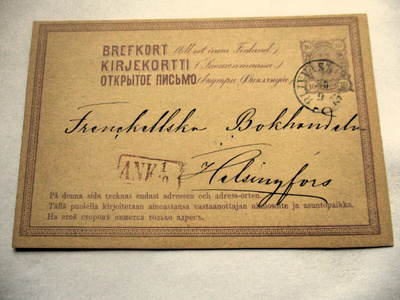 BREFKORT (till ort inom Finland)
KIRJEKORTTI (Suomenmaassa)
ОТКРЫТОЕ ПИСЬМО (внутри Финляндіи)
10 10
Frenckellska Bokhandeln
ANK
Helsingfors
På denna sida tecknas endast adressen och adress-orten.
Tälle puolella kirjoitetaan ainoastansa vastaanottajan nimi, osoite ja asuntopaikka.
На этой сторонѣ пишется только адресъ.